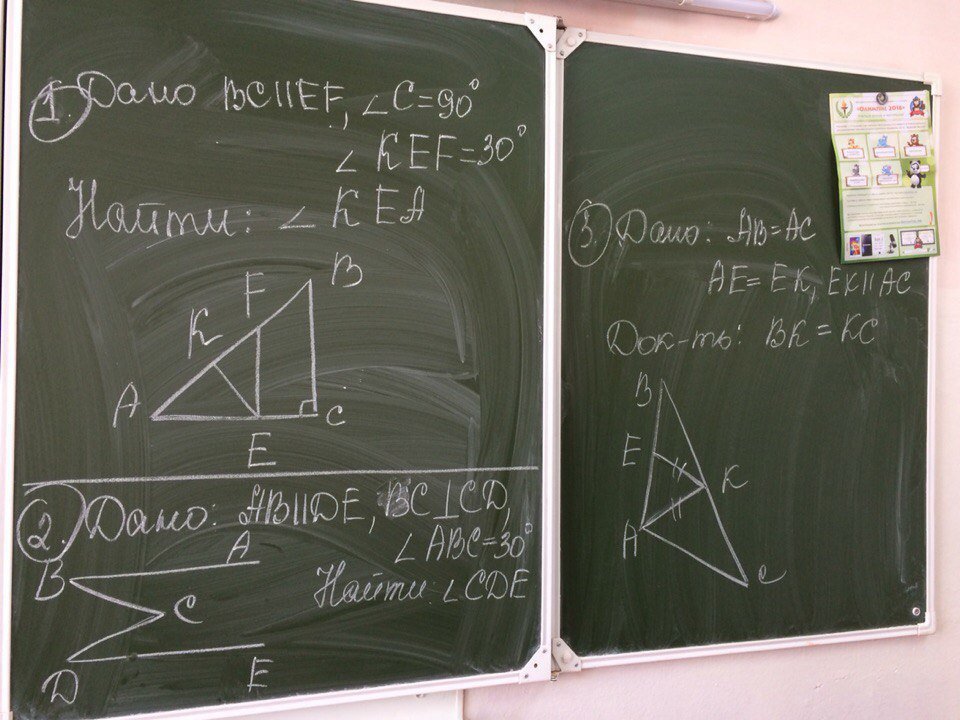 1. Дано BC||EF, ∠C=90°
∠KEF=30°
Найти: ∠KEA
B
F
K
A
C
E
2. Дано: AB||DE, BC⊥CD,
∠ABC=30°
Найти: ∠CDE
A
B
C
D
E
3. Дано: AB=AC
AE=EK, EK||AC
Док-ть: BK=KC
B
E
K
A
C
«ОЛИМПИС 2016»